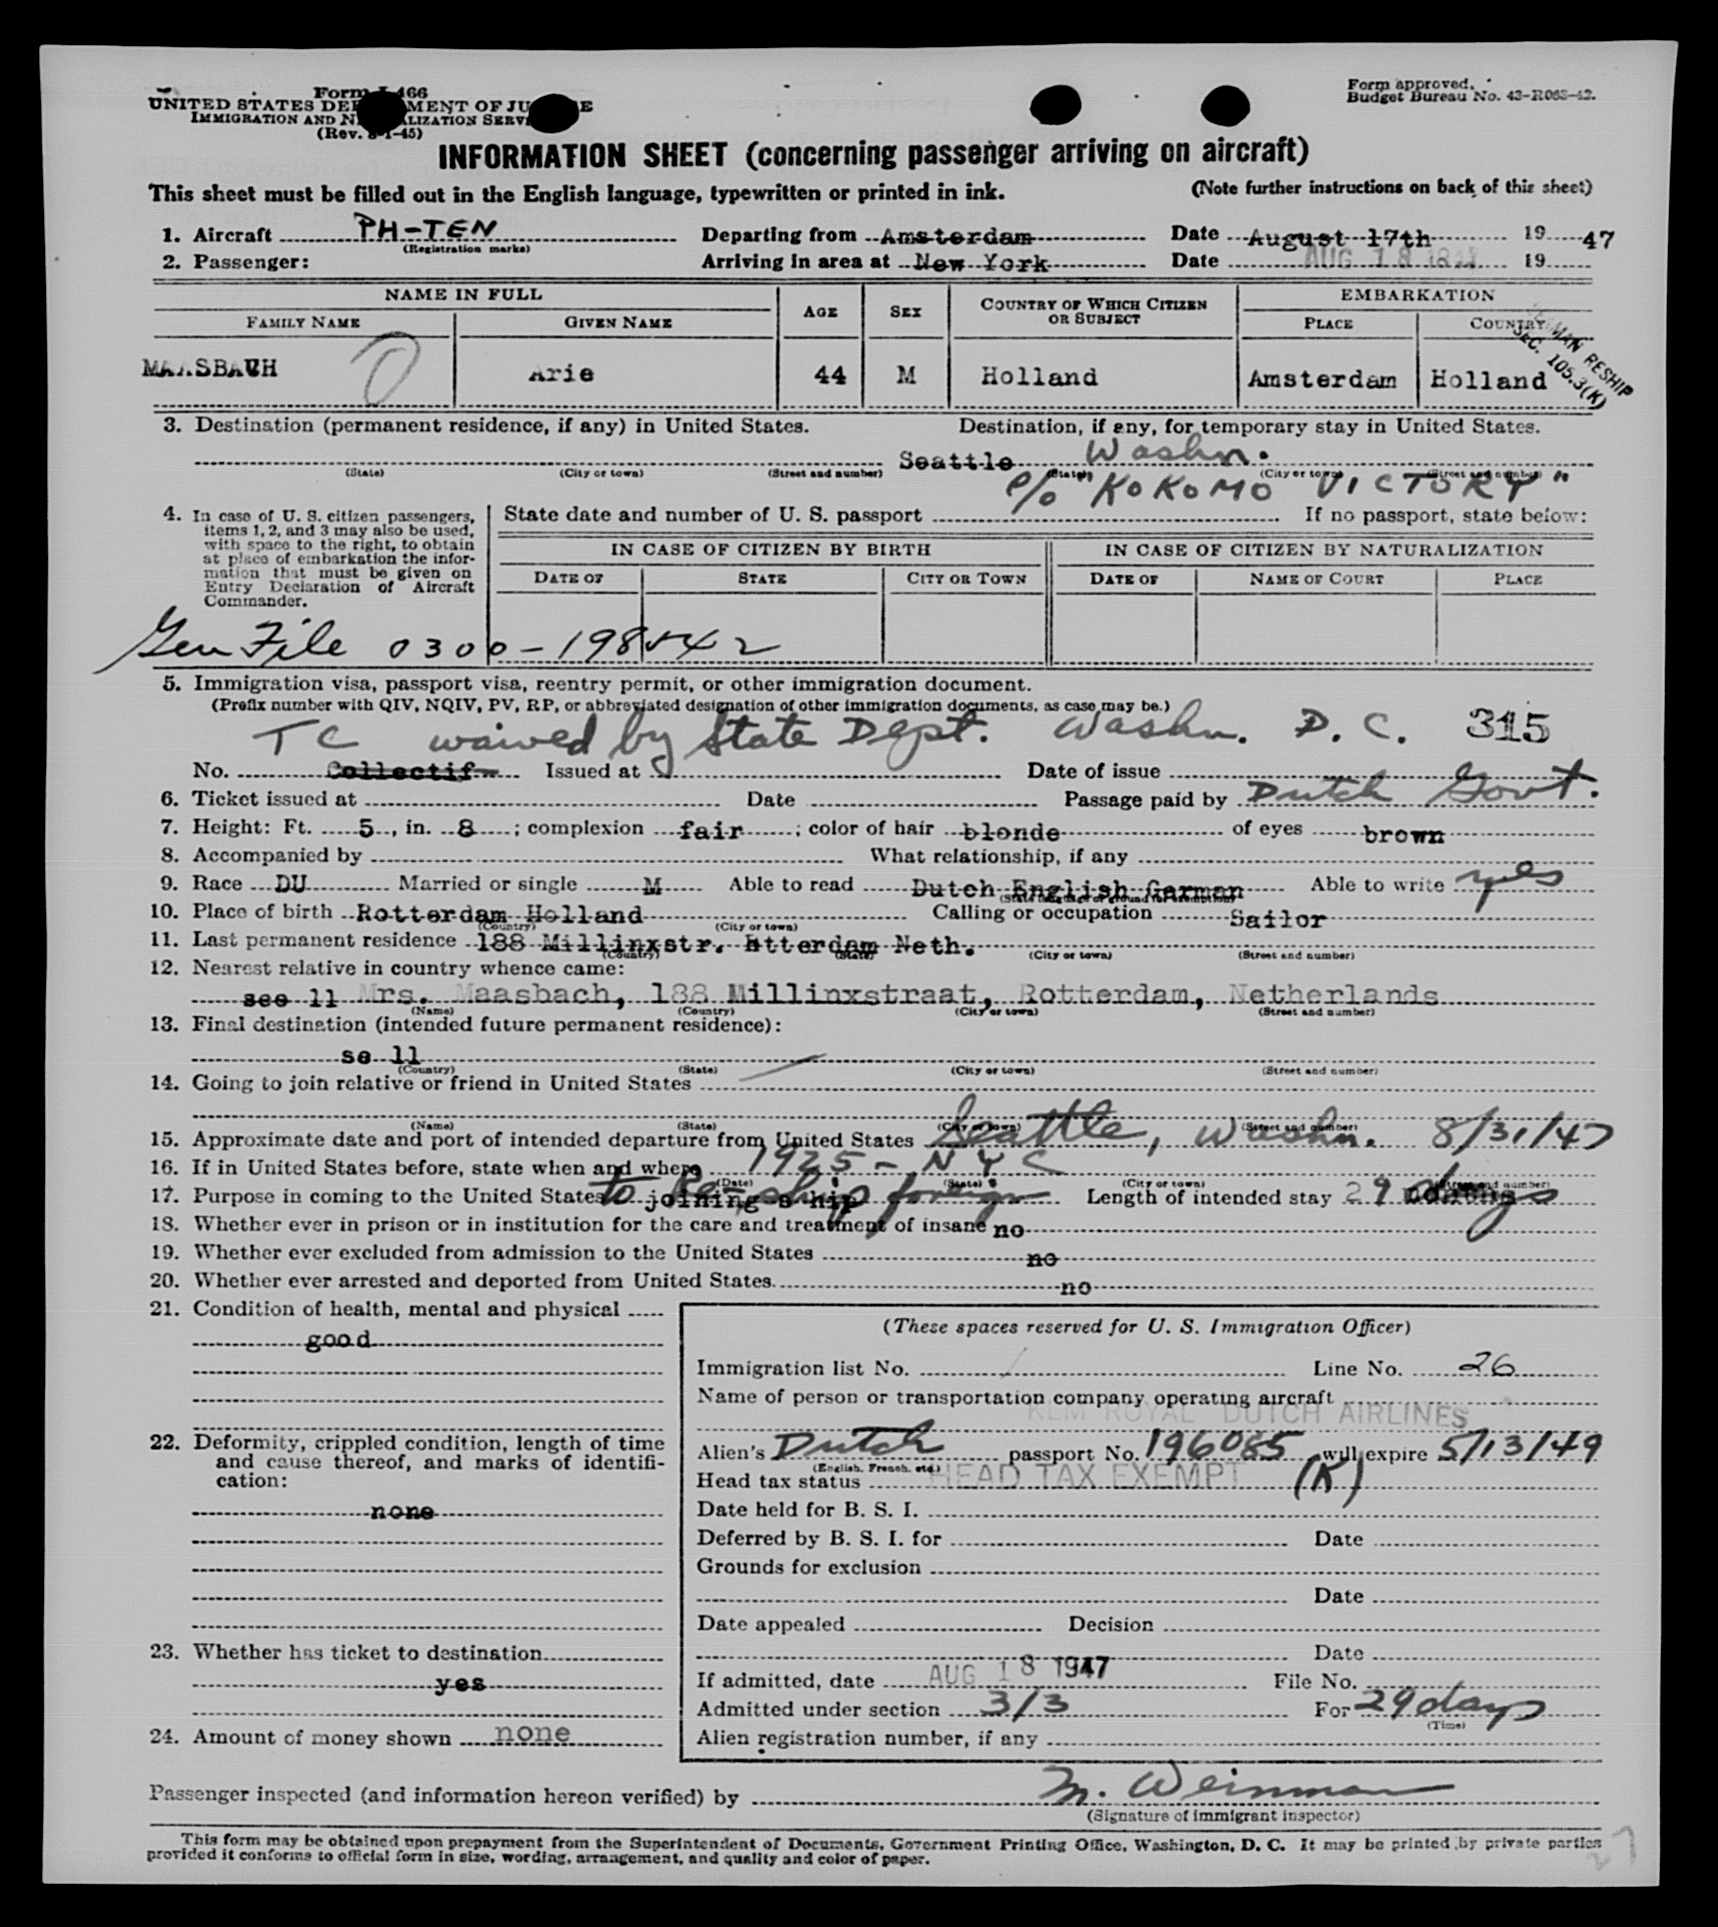 Form I-466
UNITED STATES DEPARTMENT OF JUSTICE
IMMIGRATION AND NATURALIZATION SERVICE
(Rev. 8-1-45)
Form approved.
Budget Bureau No. 43-R063-42.
INFORMATION SHEET (concerning passenger arriving on aircraft)
This sheet must be filled out in the English language, typewritten or printed in ink. (Note further instructions on back of this sheet)
1. Aircraft PH-TEN Departing from Amsterdam Date August 17th 19 47
(Registration marks)
2. Passenger: Arriving in area at New York Date AUG 18 19
NAME IN FULL AGE SEX COUNTRY OF WHICH CITIZEN OR SUBJECT EMBARKATION
FAMILY NAME GIVEN NAME PLACE COUNTRY
MAASBACH Arie 44 M Holland Amsterdam Holland
MAN RESHIP
SEC. 105.3(K)
3. Destination (permanent residence, if any) in United States. Destination, if any, for temporary stay in United States.
Seattle Washn.
(State) (City or town) (Street and number) (State) (City or town) (Street and number)
c/o KOKOMO VICTORY"
4. In case of U. S. citizen passengers, items 1, 2, and 3 may also be used, with space to the right, to obtain at place of embarkation the information that must be given on Entry Declaration of Aircraft Commander.
State date and number of U. S. passport If no passport, state below:
IN CASE OF CITIZEN BY BIRTH IN CASE OF CITIZEN BY NATURALIZATION
DATE OF STATE CITY OR TOWN DATE OF NAME OF COURT PLACE
Gen File 0300-198542
5. Immigration visa, passport visa, reentry permit, or other immigration document.
(Prefix number with QIV, NQIV, PV, RP, or abbreviated designation of other immigration documents, as case may be.)
TC waived by State Dept. Washn. D. C. 315
No. Collectif Issued at Date of issue
6. Ticket issued at Date Passage paid by Dutch Govt.
7. Height: Ft. 5, in. 8; complexion fair; color of hair blonde of eyes brown
8. Accompanied by What relationship, if any
9. Race DU Married or single M Able to read Dutch English German Able to write yes
(State language or ground for exemption)
10. Place of birth Rotterdam Holland Calling or occupation Sailor
(Country) (City or town)
11. Last permanent residence 188 Millinxstr. Rtterdam Neth.
(Country) (State) (City or town) (Street and number)
12. Nearest relative in country whence came:
see 11 Mrs. Maasbach, 188 Millinxstraat, Rotterdam, Netherlands
(Name) (Country) (City or town) (Street and number)
13. Final destination (intended future permanent residence):
se 11
(Country) (State) (City or town) (Street and number)
14. Going to join relative or friend in United States
(Name) (State) (City or town) (Street and number)
15. Approximate date and port of intended departure from United States Seattle, Washn. 8/31/47
16. If in United States before, state when and where 1925 - NYC
(Date) (State) (City or town) (Street and number)
17. Purpose in coming to the United States to Re-ship foreign joining ship Length of intended stay 29 days
18. Whether ever in prison or in institution for the care and treatment of insane no
19. Whether ever excluded from admission to the United States no
20. Whether ever arrested and deported from United States. no
21. Condition of health, mental and physical
good
22. Deformity, crippled condition, length of time and cause thereof, and marks of identification:
none
23. Whether has ticket to destination
yes
24. Amount of money shown none
(These spaces reserved for U. S. Immigration Officer)
Immigration list No. Line No. 26
Name of person or transportation company operating aircraft
KLM ROYAL DUTCH AIRLINES
Alien's Dutch passport No. 196085 will expire 5/13/49
(English, French, etc.)
Head tax status HEAD TAX EXEMPT (K)
Date held for B. S. I.
Deferred by B. S. I. for Date
Grounds for exclusion
Date
Date appealed Decision
Date
If admitted, date AUG 18 1947 File No.
Admitted under section 3/3 For 29 days
(Time)
Alien registration number, if any
Passenger inspected (and information hereon verified) by M. Weinman
(Signature of immigrant inspector)
This form may be obtained upon prepayment from the Superintendent of Documents, Government Printing Office, Washington, D. C. It may be printed by private parties
provided it conforms to official form in size, wording, arrangement, and quality and color of paper.
27